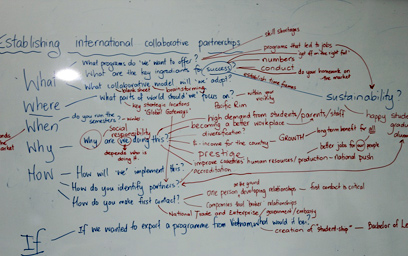 Establishing international collaborative partnerships
skill shortages
programs that led to jobs
What programs do 'we' want to offer?
get off on the right foot
What are the key ingredients for success?
numbers
conduct
do your homework on the market
What
What collaborative model will 'we' adopt?
establish time frames
blank sheet
brainstorming
What parts of world should 'we' focus on?
within your vicinity
Sustainability?
key strategic locations
Pacific Rim
'Global Gateways'
Where
do you run the semesters?
high demand from students/parents/staff
happy
When
social responsibility
becoming a better workplace
diversification?
Why
Why are (we) doing this?
E - income for the country
GROWTH
long-term benefit for all
depends who is doing it
prestige
better jobs for our people
improve
human resources/production - national push
accreditation
How
How will 'we' implement this?
How do you identify partners?
on the ground
One person developing relationships
first contact is critical
How do you make first contact?
Companies that broker relationships
National Trade and Enterprise/government/embassy
If
If we wanted to export a programme from Vietnam, what would it be?
creation of "student-ship"
Bachelor of